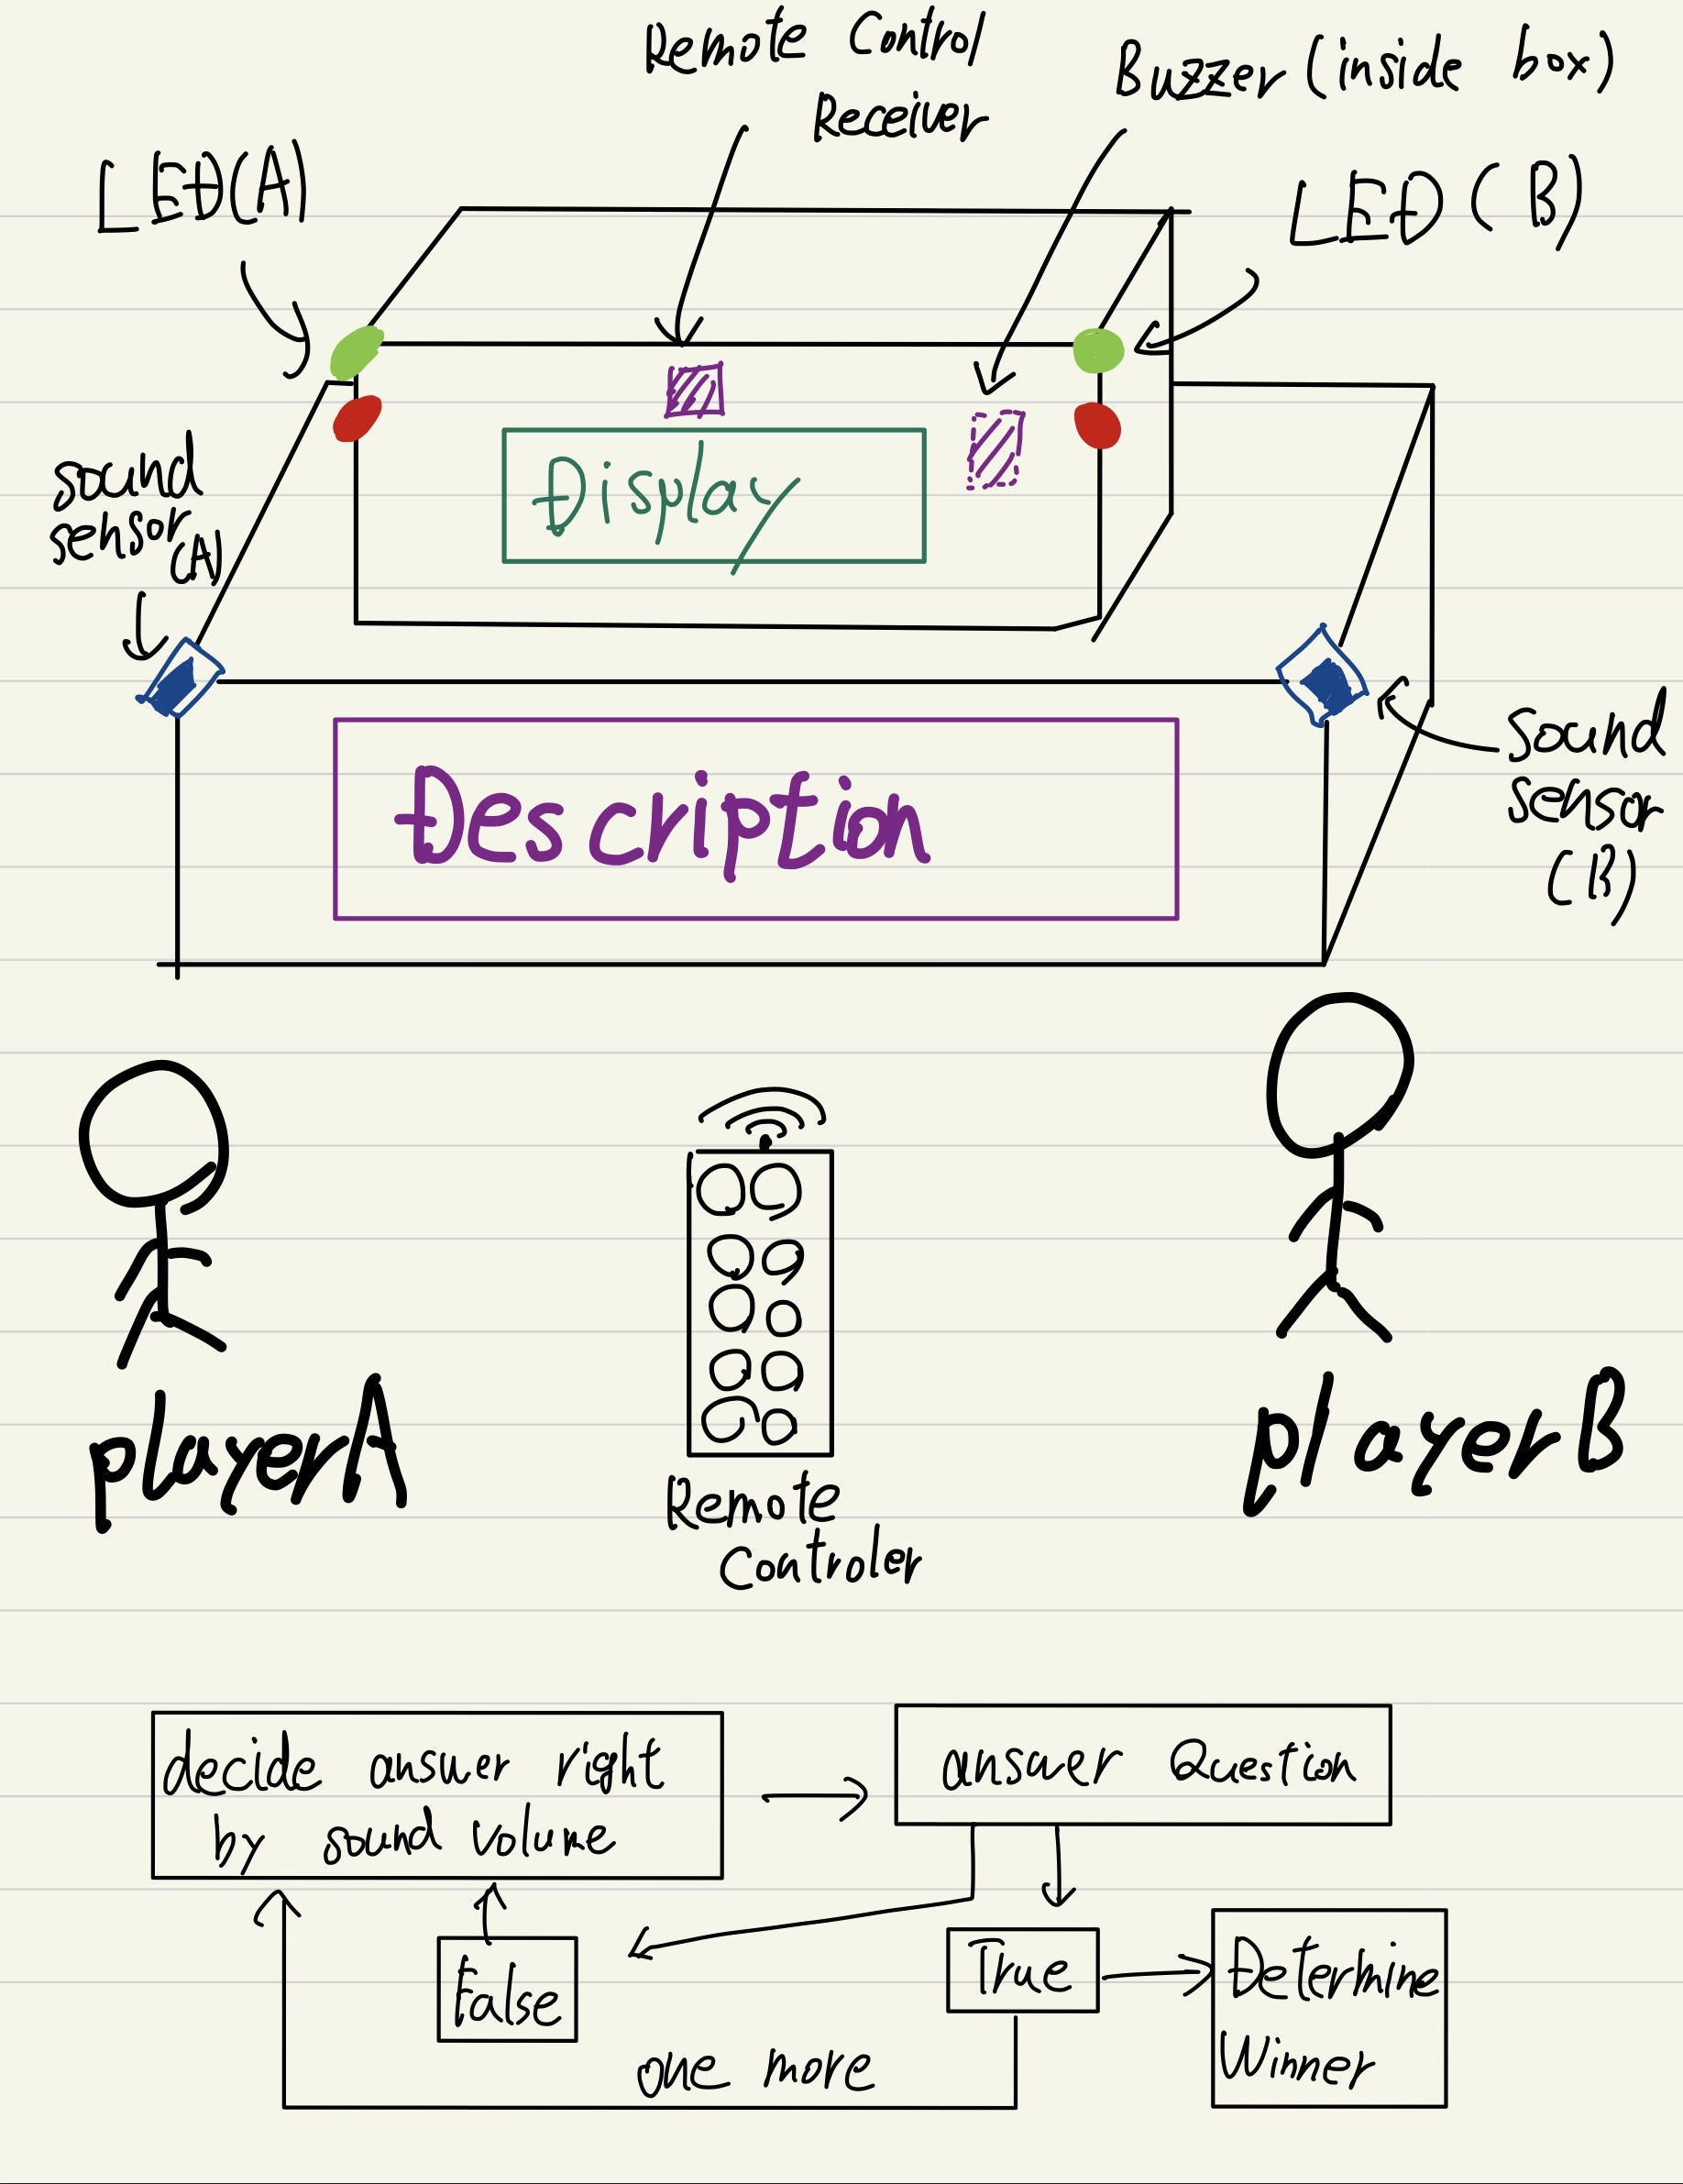 Remote Control
Receiver
Buzzer (inside box)
LED(A)
LED (B)
sound
sensor
(A)
Display
Sound
Sensor
(B)
Description
player A
player B
Remote
Controler
decide answer right
by sound volume
answer Question
False
True
Determine
Winner
one more